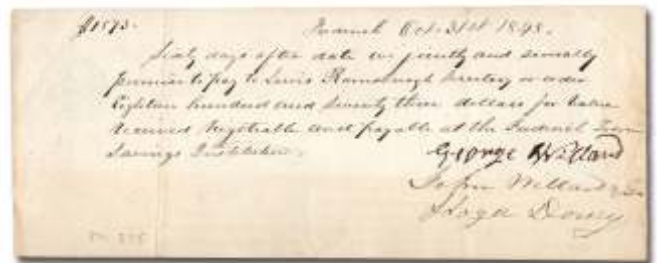 $1873. Oct. 31st 1848.
Sixty days after date we jointly and severally
promise to pay to Lewis or order
Eighteen hundred and seventy three dollars for value
received Negotiable and payable at the
Savings Institution.
George Willard
John Willard